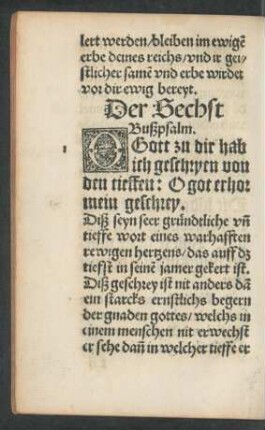 lert werden/bleiben im ewigẽ
erbe deines reichs/vnd ir gei⸗
stlicher samẽ vnd erbe wirdet
vor dir ewig bereyt.
Der Sechst
Bußpsalm.
O Gott zu dir hab
1
ich geschryen von
den tieffen: O got erhor
mein geschrey.
Diß seyn seer gründtliche vñ
tieffe wort eines warhafften
rewigen hertzens/das auff dz
tieffst in seinẽ jamer gekert ist.
Diß geschrey ist nit anders dañ
ein starcks ernstlichs begern
der gnaden gottes/welchs in
einem menschen nit erwechst
er sehe dañ in welcher tieffe er